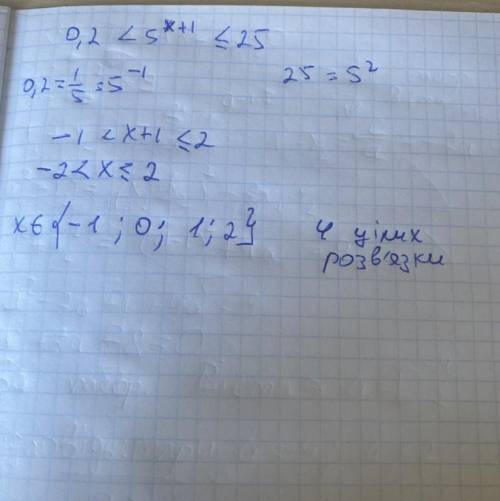 0,2 < 5^{x+1} ≤ 25
0,2 = 1/5 = 5^{-1} 25 = 5^2
-1 < x+1 ≤ 2
-2 < x ≤ 2
x є {-1 ; 0 ; 1 ; 2} 4 цілих
розв'язки